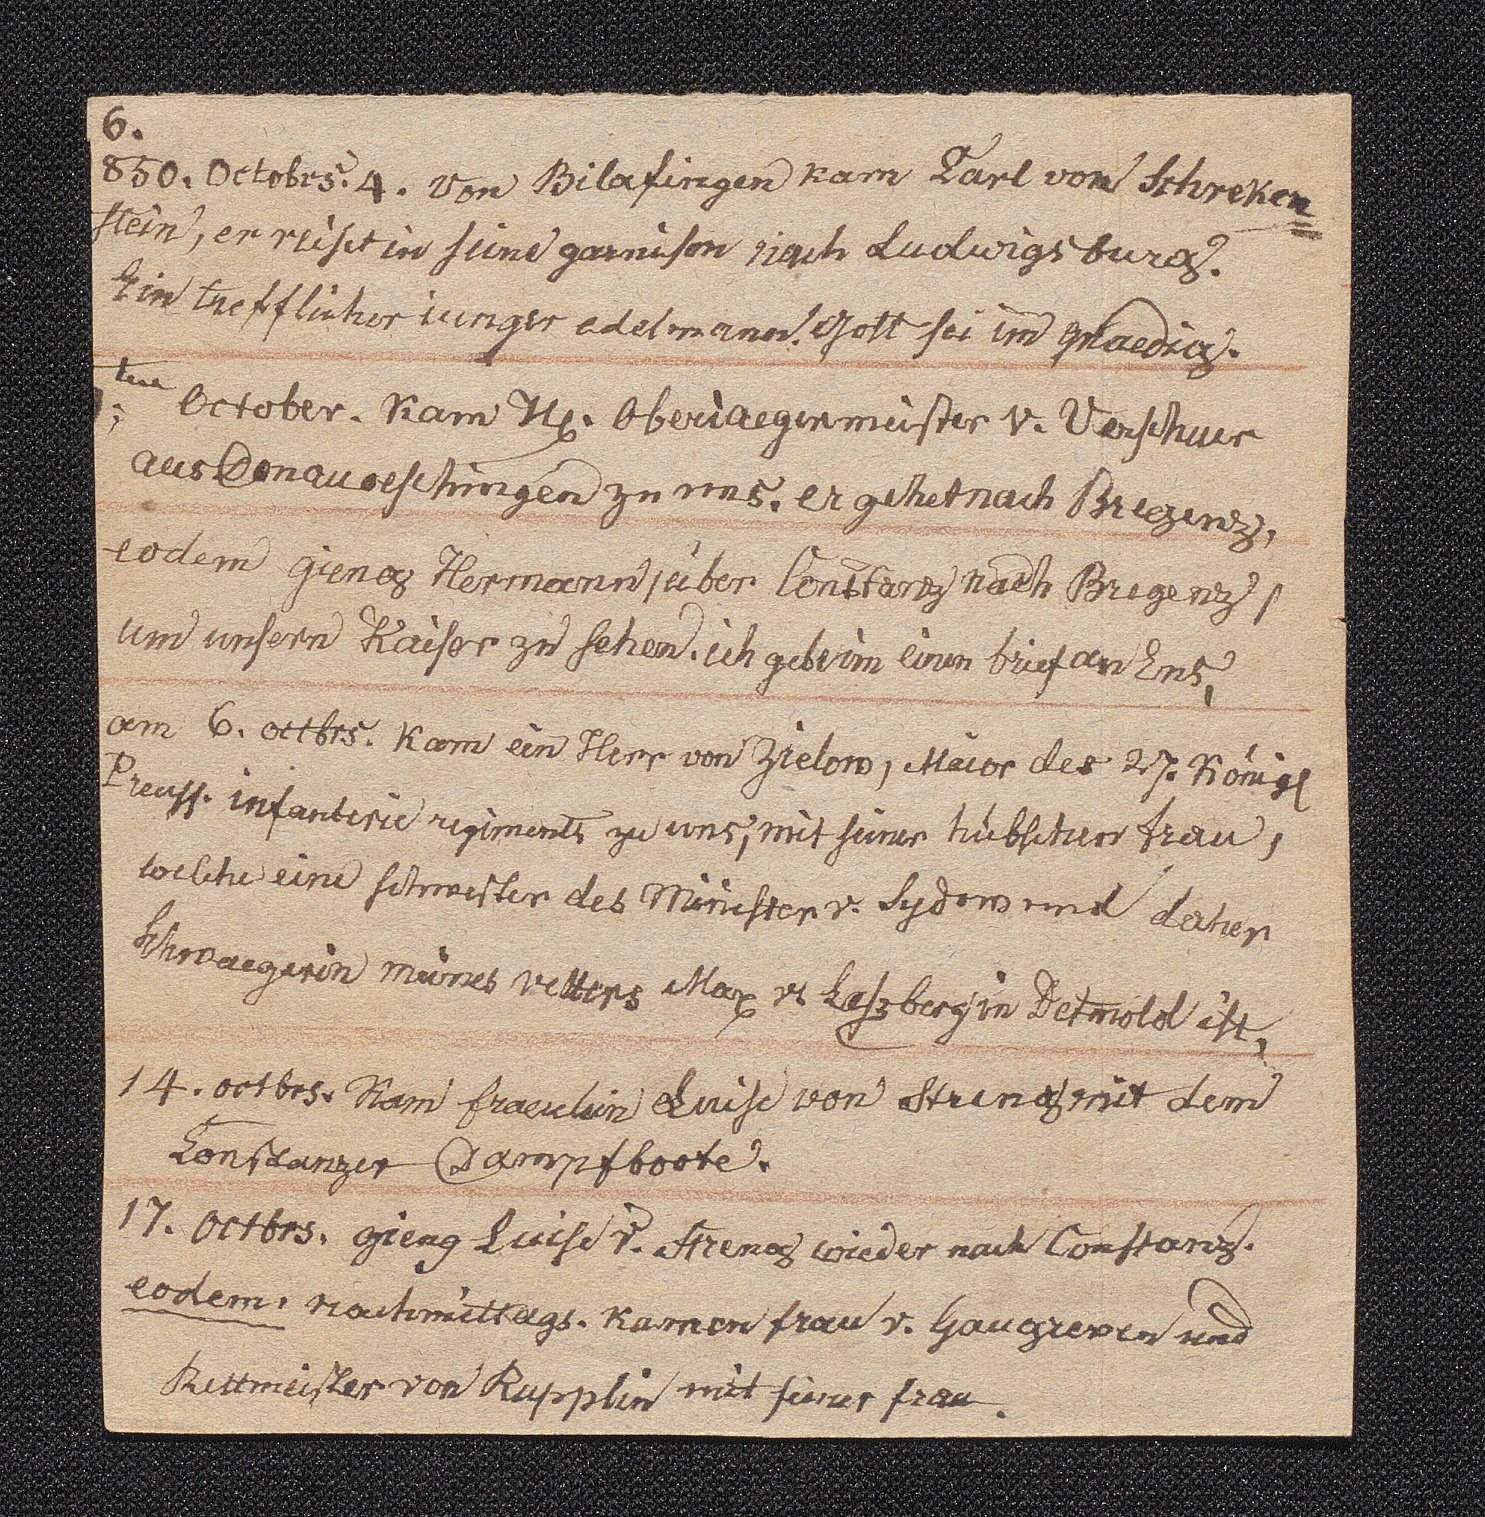 6.
850. Octobrs. 4. von Bilafingen kam Carl von Schreken=
stein, er reiset in seine garnison nach Ludwigsburg.
Ein trefflicher iunger edelmann. Gott sei im gnaedig.
ten October. Kam Hr. Oberiaegermeister v. Verschuer
aus Donaueschingen zu uns. er gehet nach Bregenz,
eodem gieng Hermann, über Constanz nach Bregenz,
um unsern Kaiser zu sehen. ich gebe im einen brief an Ens,
am 6. octbrs. kam ein Herr von Zielow, Maior des 27. Königl
Preuss. infanterie regiments zu uns, mit seiner hübschen frau,
welche eine schwester des Minister v. Sydow und daher
Schwaegerin meines vetters Max v. Laszberg in Detmold ist,
14. octbrs. Kam fraeulein Luise von Streng mit dem
Constanzer Dampfboote.
17. Octbrs. gieng Luise v. Streng wieder nach Constanz.
eodem. nachmittags. kamen frau v. Gaugreven und
Rittmeister von Rupplin mit seiner frau.